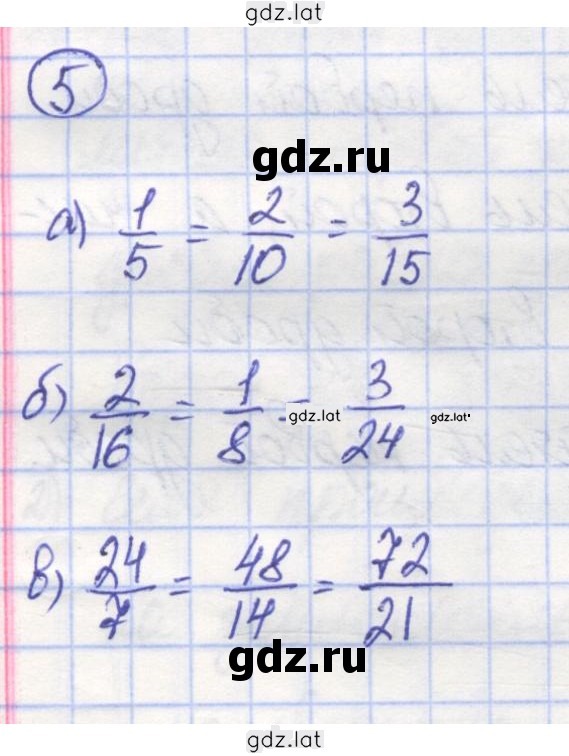 gdz.lat
5
gdz.ru
а) 1/5 = 2/10 = 3/15
б) 2/16 = 1/8 = 3/24
gdz.lat gdz.lat
в) 24/7 = 48/14 = 72/21
gdz.ru
gdz.lat